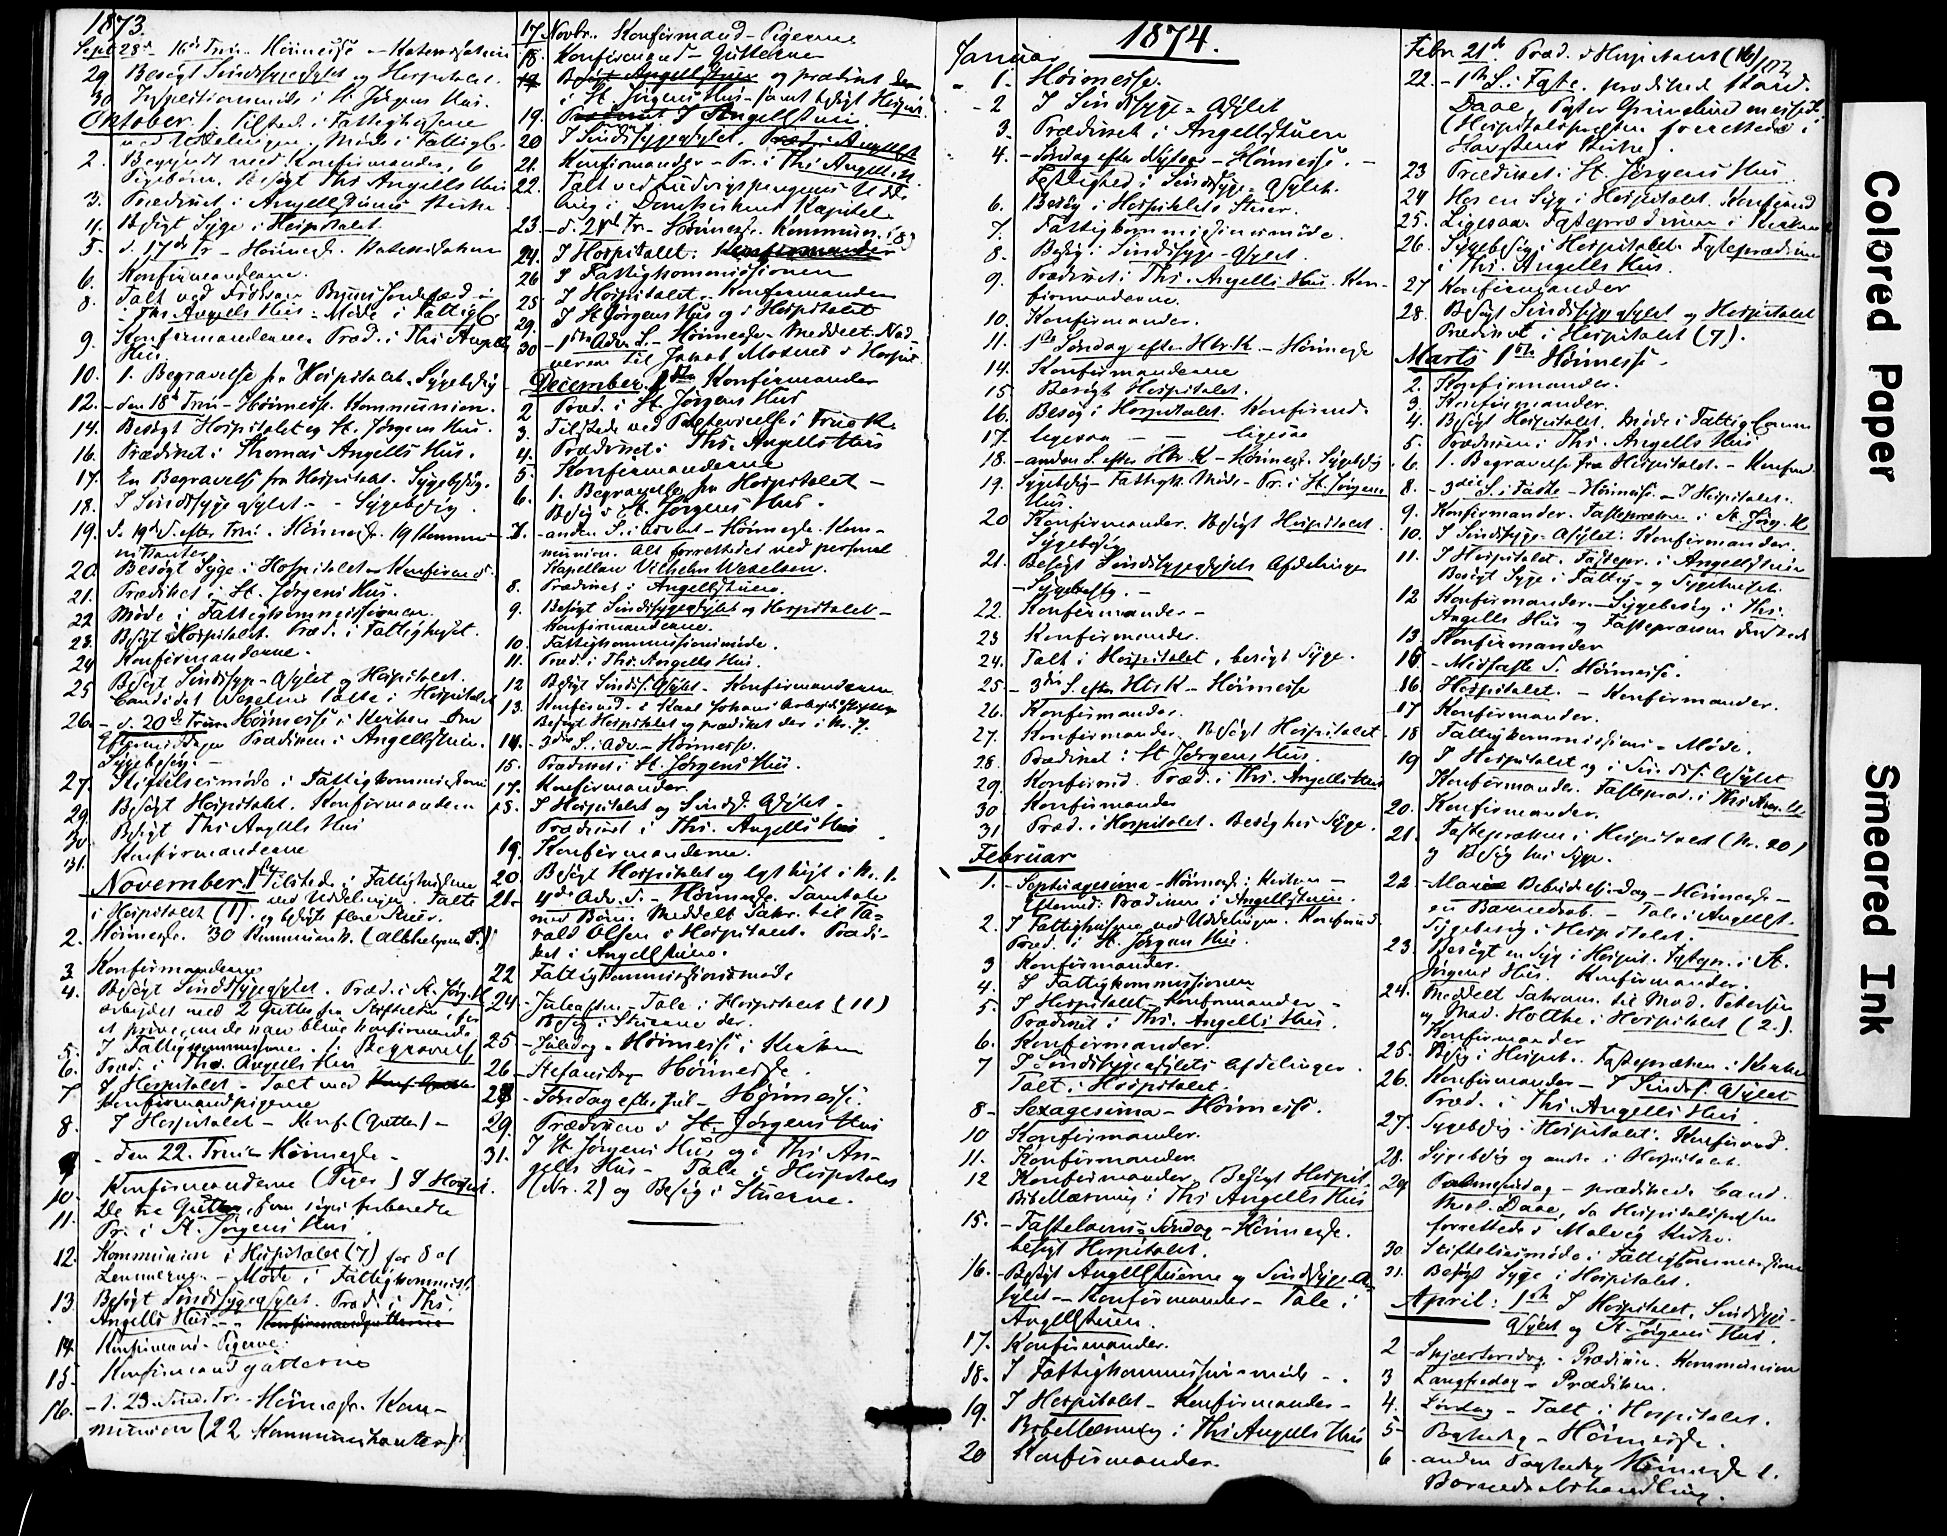 1873.
Sept 28de 16de Trin. Höimesse - Katekisation
29 Besögt Sindssygeasylet og Hospitalet.
30 Inspektionsmöde i St. Jörgens Hus.
Oktober. 1. Tilsted. i Fattighusene
ved Uddelingen. Möde i Fattigk.
2. Begyndt med Konfirmander, 6
Pigebörn. Besögt Ths Angells Hus
3. Prædiket i Angells Stuens Kirke
4. Besögt Syge i Hospitalet.
5. d. 17de Tr - Höimesse. Katekisation
6. Konfirmanderne.
8. Talt ved
i Ths Angells Hus - Möde i Fattigk.
9. Konfirmanderne. Præd. i Ths Angells
Hus.
10. 1. Begravelse fra Hospitalet. Sygebesög
12. - den 18de Trin - Höimesse. Kommunion.
14. Besögt Hospitalet og St. Jörgens Hus.
16. Prædiket i Thomas Angells Hus.
17. En Begravelse fra Hospitalet. Sygebesög.
18. I Sindssygeasylet - - Sygebesög.
19. d. 19de S. efter Trin. Höimesse. 19 Kommu-
nikanter
20. Besögt Syge i Hospitalet - Konfirmand.
21. Prædiket i St. Jörgens Hus.
22 Möde i Fattigkommissionen.
23. Besögt Hospitalet. Præd. i Fattighuset.
24 Konfirmanderne.
25 Besögt Sindssyge-Asylet og Hospitalet.
Candidat Wexelsen talte i Hospitalet
26. - d. 20de Trin Höimesse i Kirken - Om
Eftermiddagen Prædiken i Angells Stuen.
Sygebesög. -
27. Stiftelsesmöde i Fattigkommissionen
29 Besögt Hospitalet. Konfirmanderne
30. Besögt Ths Angells Hus
31. Konfirmanderne
November. 1ste Tilstede i Fattighusene
ved Uddelingen. Talte
i Hospitalet (1) og besögte flere Stuer.
2. Höimesse. 30 Kommunik. (Allehelgens S.)
3 Konfirmanderne
4. Besögt Sindssygeasylet. Præd. i St. Jörg. H.
arbeidet med 2 Gutter fra Stiftelsen, for
at pröve, om de kan blive konfirmerede
5. I Fattigkommissionen. 1 Begravelse
6. Præd. i Ths. Angells Hus
7 I Hospitalet - Talt med
Konfirmandpigerne
8. I Hospitalet - Konf. (Gutter) -
9 - Den 22. Trin - Höimesse -
10. Konfirmanderne (Piger) I Hospit.
11. De to Gutter, som især forberedte
Pr. i St. Jörgens Hus.
12. Kommunion i Hospitalet (7) for 8 af
Lemmerne - Möde i Fattigkommiss.
13. Besögt Sindssygeasylet. Præd. i Ths.
Angells Hus - - Konfirmandgutterne
14. Konfirmand-Pigerne.
15. Konfirmandgutterne
16. - d. 23 Sönd. Tr. - Höimesse. Kom-
munion (22 Kommunikanter)
17 Novbr. Konfirmand-Pigerne
18. Konfirmand-Gutterne
19 Besögt Angells Stuer og prædiket den
i St. Jörgens Hus - samt besögt Hospit.
19. Prædiket I Angells Stuen.
20 I Sindssygeasylet. Præd. i Angells St
21. Konfirmander - Pr. i Ths Angells H.
22. Talt ved Ludvigspengenes Udde-
ling i Domkirkens Kapitel
23. - d. 24de Tr. - Höimesse. Kommun. (8)
24. I Hospitalet. Konfirmander
26 I Fattigkommissionen
25 I Hospitalet - Konfirmander
29. I St Jörgens Hus og i Hospitalet
30 - 1ste Adv. S. - Höimesse - Meddelt Nad-
veren til Jakob Mosnes i Hospit.
December. 1ste Konfirmander
2 Præd. i St. Jörgens Hus
3. Tilstede ved Præstevielse i Frue K.
4. Prædiket i Ths. Angells Hus
5. Konfirmanderne
6. 1. Begravelse fra Hospitalet -
Besög i St. Jörgens Hus.
7. - anden S. i Advent - Höimesse. Kom-
munion. Alt forrettedes ved personel
Kapellan Vilhelm Wexelsen.
8. Prædiket i Angells Stuen.
9. Besögt Sindssygeasylet og Hospitalet -
Konfirmanderne.
10. Fattigkommissionsmöde.
11. Præd. i Ths. Angells Hus.
12 Besögt Sindss. Asylet - Konfirmanderne
13. Konfirmd. i Karl Johans Arbeidsstiftelse
Besögt Hospitalet og prædiket der i Nr. 7.
14. - 3die S. i Adv. - Höimesse.
15. Prædiket i St. Jörgens Hus.
17. Konfirmander.
18. I Hospitalet og Sindss. Asylet -
Prædiket i Ths. Angells Hus
19. Konfirmanderne.
20. Besögt Hospitalet og lyst höit i Nr. 1.
21. - 4de Adv. S. - Höimesse. Samtale
med Börn. Meddelt Sakr. til Ha-
rald Olsen i Hospitalet. Prædi-
ket i Angells Stuen.
22 Fattigkommissionsmöde
24 - Juleaften - Tale i Hospitalet (11)
Besög i Stuerne der.
25 - Juledag - Höimesse i Kirken
26 - Stefansdag Höimesse.
28 - Söndag efter Jul - Höimesse.
29. Prædiken i St. Jörgens Hus
31. I St Jörgens Hus og i Ths An-
gells Hus - Tale i Hospitalet
(Nr. 2) og Besög i Stuerne.
1874.
Januar
1. Höimesse.
2 I Sindssyge-Asylet
3. Prædiket i Angells Stuen
4. - Söndag efter Nytaar - Höimesse. -
Festlighed i Sindssyge-Asylet.
6. Besög i Hospitalets Stuer.
7. Fattigkommissionsmöde.
8. Besög i Sindssyge-Asylet.
9. Prædiket i Ths. Angells Hus. Kon-
firmanderne.
10. Konfirmander.
11. 1ste Söndag efter H3rK - Höimesse
14. Konfirmanderne
15. Besögt Hospitalet.
16. Besög i Hospitalet. Konfirmd.
17. ligesaa - - ligesaa
18. - anden S. efter H3r.K - Höimesse. Sygebesög
19. Sygebesög - Fattigk. Möde - Pr. i St. Jörgens
Hus.
20 Konfirmander. Besögt Hospitalet.
Sygebesög
21. Besögt Sindssygeasylets Afdelinger
- Sygebesög. -
22. Konfirmander -
23 Konfirmander.
24. Talt i Hospitalet, besögt Syge.
25 - 3die S. efter H3rK - Höimesse
26. Konfirmander.
27. Konfirmander. Besögt Hospitalet
28. Prædiket i St Jörgens Hus.
29. Konfirmd. Præd. i Ths. Angells Hus
30 Konfirmander
31 Præd. i Hospitalet. Besög hos Syge.
Februar
1. - Septuagesima - Höimesse i Kirken -
Efterm: Prædiken i Angells Stuen.
2. I Fattighusene ved Uddelingen. Konfirmd.
Præd. i St. Jörgens Hus.
3 Konfirmander.
4. I Fattigkommissionen
5. I Hospitalet - Konfirmander -
Prædiket i Ths. Angells Hus.
6. Konfirmander.
7 I Sindssygeasylets Afdelinger.
Talt i Hospitalet.
8 - Sexagesima - Höimesse.
10 Konfirmander.
11. Konfirmander
12 Konfirmander. (Besögt Hospit.
Bibellæsning i Ths Angells Hus
15. - Fastelavns-Söndag - Höimesse.
besögt Hospitalet.
16. - Besögt Angells Stuerne og Sindssyge-A-
sylet - Konfirmander - Tale i
Angells Stuen.
17. Konfirmander.
18. I Fattigkommissionsmöde - .
19. I Hospitalet - Konfirmander -
Bibellæsning i Ths Angells Hus
20 Konfirmander.
Febr. 21de Præd. i Hospitalet (16)
102
22. - 1ste S. i Faste. prædikede Stud.
Daae, Pastor Grimelund messede.
(Hospitalspresten forrettede i
Havstens Kirke).
23 Prædiket i St. Jörgens Hus.
24 Hos en Syg i Hospitalet. Konfirmd
25. Ligesaa. Fasteprædiken i Kirken
26. Sygebesög i Hospitalet. Fasteprædiken
i Ths. Angells Hus.
27 Konfirmander
28. Besögt Sindssygeasylet og Hospitalet
Prædiket i Hospitalet (7).
Marts 1ste Höimesse -
2. Konfirmander.
3. Konfirmander.
4. Besögt Hospitalet. Möde i Fattigkomm
5. Prædiken i Ths. Angells Hus
6. 1. Begravelse fra Hospitalet. - Konfmd.
8. - 3die S. i Faste - Höimesse - I Hospitalet.
9. Konfirmander. Fastepræken i St. Jörg. H.
10. I Sindssyge-Asylet. Konfirmander.
11. I Hospitalet. Fastepr. i Angells Stuen
Besögt Syge i Fattig- og Sygehuset.
12 Konfirmander. - Sygebesög i Ths.
Angells Hus og Fastepræken
13. Konfirmander
15. - Midfaste S. Höimesse.
16. Hospitalet. - Konfirmander.
17 Konfirmander.
18 Fattigkommissions-Möde.
19 I Hospitalet og i Sindss. Asylet
Konfirmander. Fastepræd. i Ths Ang. H.
20. Konfirmander.
21. Fastepræken i Hospitalet (Nr. 20)
og Besög hos Syge.
22 - Mariæ Bebudelsesdag - Höimesse -
en Barnedaab. - Tale i Angells St.
Sygebesög i Hospitalet.
23 Besögt en Syg i Hospit. Fastepr. i St.
Jörgens Hus. Konfirmander.
24. Meddelt Sakram. til Mad. Petersen
og Mad. Holthe i Hospitalet (2.).
Konfirmander
25. Besög i Hospit. Fastepræken i Kirken
26. Konfirmander - I Sindss. Asylet
Præd. i Ths. Angells Hus.
27. Sygebesög i Hospitalet. Konfirmd.
28. Sygebesög og andre i Hospitalet.
29 Palmesöndag - prædikede Cand.
Theol. Daae, da Hospitalspresten
forrettede i Malvig Kirke.
30. Stiftelsesmöde i Fattigkommissionen
31. Besögt Syge i Hospitalet.
April: 1ste I Hospitalet, Sindssyge-
Asylet og St. Jörgens Hus.
2 - Skjærtorsdag - Prædiken. Kommunion
3 Langfredag - Prædiken.
4. Lördag - Talt i Hospitalet.
5 - Paaskedag - Höimesse.
6 - anden Paaskedag Höimesse 1.
Barnedaabshandling.
Colored Paper
Smeared Ink